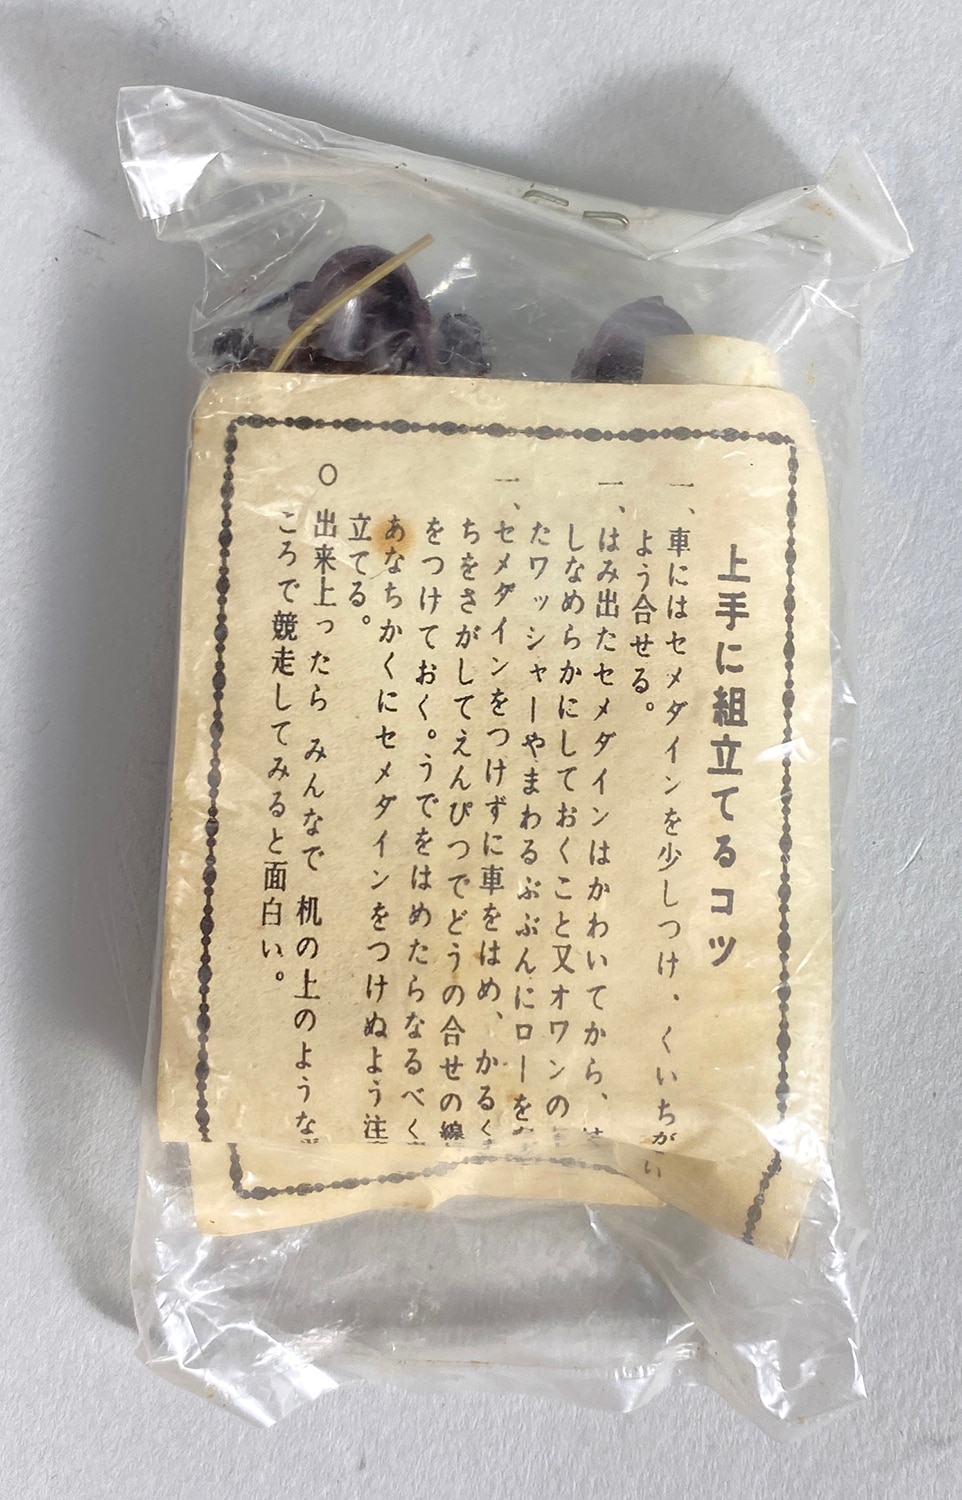 上手に組立てるコツ
一、車にはセメダインを少しつけ、くいちがい
よう合せる。
一、はみ出たセメダインはかわいてから、
しなめらかにしておくこと又オワンの
たワッシャーやまわるぶぶんにローを
一、セメダインをつけずに車をはめ、かるく
ちをさがしてえんぴつでどうの合せの線
をつけておく。うでをはめたらなるべく
あなちかくにセメダインをつけぬよう注
立てる。
○出来上ったら みんなで 机の上のような
ころで競走してみると面白い。